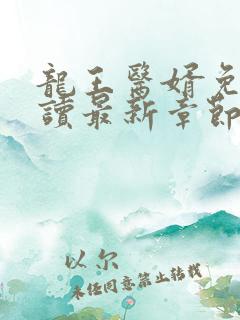 龍王醫婿免
讀最新章節
以尔
未经同意禁止转载